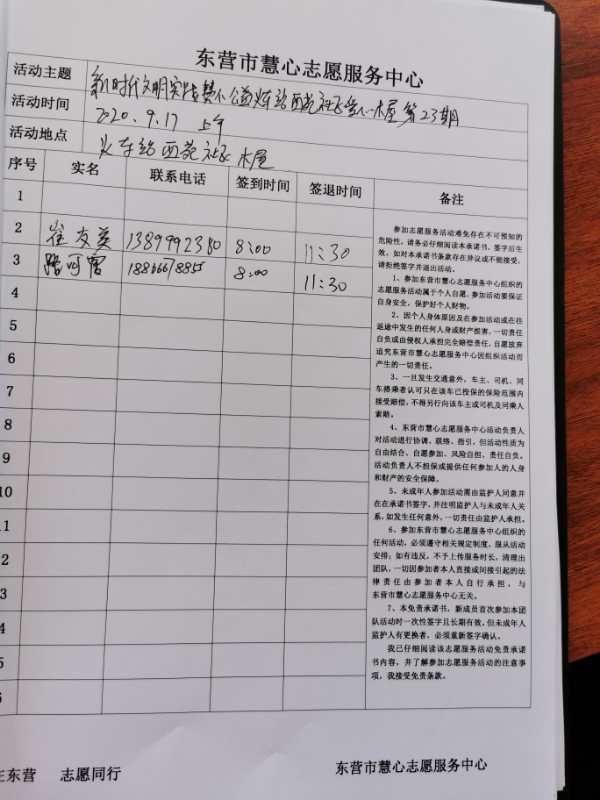 东营市慧心志愿服务中心
活动主题 新时代文明实践 公益火车站西苑社区 木屋第23期
活动时间 2020.9.17 上午
活动地点 火车站西苑社区木屋
序号 实名 联系电话 签到时间 签退时间 备注
1
2 崔友英 1389992380 8:00 11:30
3 8:00 11:30
4
5
6
7
8
9
10
1
2
3
4
5
6
参加志愿服务活动难免存在不可预知的
危险性，请务必仔细阅读本承诺书，签字后生
效，如对本承诺书条款存在异议或不能接受，
请拒绝签字并退出活动。
1、参加东营市慧心志愿服务中心组织的
志愿服务活动属于个人自愿，参加活动要保证
自身安全，保护好个人财物。
2、因个人身体原因及在参加活动或在往
返途中发生的任何人身或财产损害，一切责任
自负或由侵权人承担完全赔偿责任，自愿放弃
追究东营市慧心志愿服务中心因组织活动而
产生的一切责任。
3、一旦发生交通意外，车主、司机、同
车搭乘者认可只在该车已投保的保险范围内
接受赔偿，不得另行向该车主或司机及同乘人
索赔。
4、东营市慧心志愿服务中心活动负责人
对活动进行协调、联络、指引，但活动性质为
自由结合、自愿参加、风险自担、责任自负。
活动负责人不担保或提供任何参加人的人身
和财产的安全保障。
5、未成年人参加活动需由监护人同意并
在在承诺书签字，并注明监护人与未成年人关
系，如发生任何意外，一切责任由监护人承担。
6、参加东营市慧心志愿服务中心组织的
任何活动，必须遵守相关规定制度，服从活动
安排；如有违反，不予上传服务时长，清理出
团队，一切因参加者本人直接或间接引起的法
律责任由参加者本人自行承担，与
东营市慧心志愿服务中心无关。
7、本免责承诺书，新成员首次参加本团
队活动时一次性签字且长期有效，但未成年人
监护人有更换者，必须重新签字确认。
我已仔细阅读该志愿服务活动免责承诺
书内容，并了解参加志愿服务活动的注意事
项，我接受免责条款。
东营 志愿同行 东营市慧心志愿服务中心